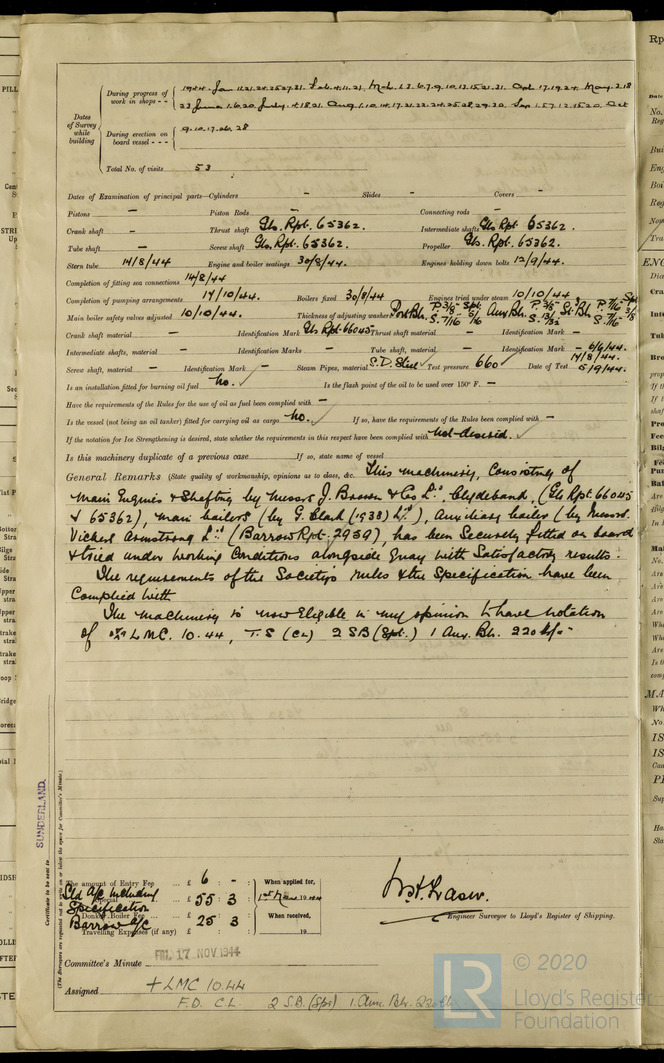 Dates of Survey while building
During progress of work in shops - -
1944. Jan 11.21.24.25.27.31. Feb. 4.11.21, Mch. 1.3.6.7.9.10.13.15.21.31. Apl 17.19.24 May. 2.18
23 June 1.6.20. July. 4.18.21. Aug. 1.10.14.17.21.22.24.25.28.29.30. Sep 1.5.7.12.15.20. Oct
During erection on board vessel - - -
9.10.17.26.28
Total No. of visits 53
Dates of Examination of principal parts—Cylinders - Slides - Covers -
Pistons - Piston Rods - Connecting rods -
Crank shaft - Thrust shaft Gls. Rpt. 65362. Intermediate shafts Gls Rpt 65362.
Tube shaft - Screw shaft Gls. Rpt. 65362. Propeller Gls. Rpt. 65362.
Stern tube 14/8/44 Engine and boiler seatings 30/8/44. Engines holding down bolts 12/9/44.
Completion of fitting sea connections 14/8/44
Completion of pumping arrangements 17/10/44. Boilers fixed 30/8/44 Engines tried under steam 10/10/44.
Main boiler safety valves adjusted 10/10/44. Thickness of adjusting washers Port Blr. P. 3/8" S. 7/16 Spt. 5/16 Aux Blr. P. 3/8" S. 13/32 St'd Blr. P. 7/16" S. 7/16" Spt 3/8
Crank shaft material - Identification Mark Gls Rpt 66045 Thrust shaft material - Identification Mark -
Intermediate shafts, material - Identification Marks - Tube shaft, material - Identification Mark - 6/6/44.
Screw shaft, material - Identification Mark - Steam Pipes, material S.D. Steel Test pressure 660 Date of Test 14/8/44. 5/9/44.
Is an installation fitted for burning oil fuel no. Is the flash point of the oil to be used over 150° F. -
Have the requirements of the Rules for the use of oil as fuel been complied with -
Is the vessel (not being an oil tanker) fitted for carrying oil as cargo no. If so, have the requirements of the Rules been complied with -
If the notation for Ice Strengthening is desired, state whether the requirements in this respect have been complied with not desired.
Is this machinery duplicate of a previous case If so, state name of vessel
General Remarks (State quality of workmanship, opinions as to class, &c. This machinery, Consisting of
main Engines & Shafting by Messrs J. Brown & Co Ld., Clydebank, (Gls Rpt. 66045
& 65362), main boilers (by G. Clark (1938) Ld.), Auxiliary boiler (by Messrs.
Vickers Armstrong Ld. (Barrow Rpt. 2959), has been Securely fitted on board
& tried under working Conditions alongside quay with Satisfactory results.
The requirements of the Society's rules & the Specification have been
Complied with
The machinery is now Eligible in my opinion to have notation
of + LMC. 10.44, T.S (CL) 2 SB (Spt.) 1 Aux. Blr. 220 lbs.
SUNDERLAND.
Certificate to be sent to
(The Surveyors are requested not to write on or below the space for Committee's Minute.)
The amount of Entry Fee ... £ 6 : - :
Sld A/c including Specification
Special ... £ 55 : 3 :
Donkey Boiler Fee ... £ 25 : 3 :
Barrow A/c
Travelling Expenses (if any) £ : :
When applied for,
1st Nov 1944
When received,
19
W.H. Fraser.
Engineer Surveyor to Lloyd's Register of Shipping.
FRI. 17 NOV 1944
Committee's Minute
Assigned + LMC 10.44
F.D. C.L. 2 S.B. (Spt) 1 Aux. Blr. 220 lb
LR
© 2020
Lloyd's Register
Foundation